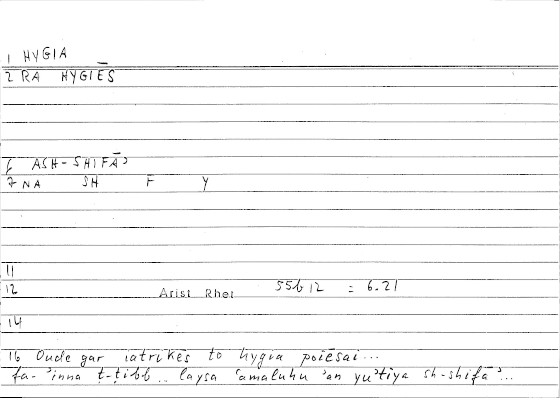 1 HYGIA
2 RA HYGIĒS
6 ASH-SHIFĀʾ
7 NA SH F Y
11
12 Arist Rhet 55b12 = 6.21
14
16 Oude gar iatrikēs to hygia poiēsai...
fa-ʾinna ṭ-ṭibb .. laysa ʿamaluhu ʾan yuʿṭiya sh-shifāʾ...